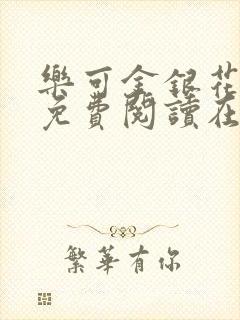 樂可金銀花
免費閱讀在
繁華有你